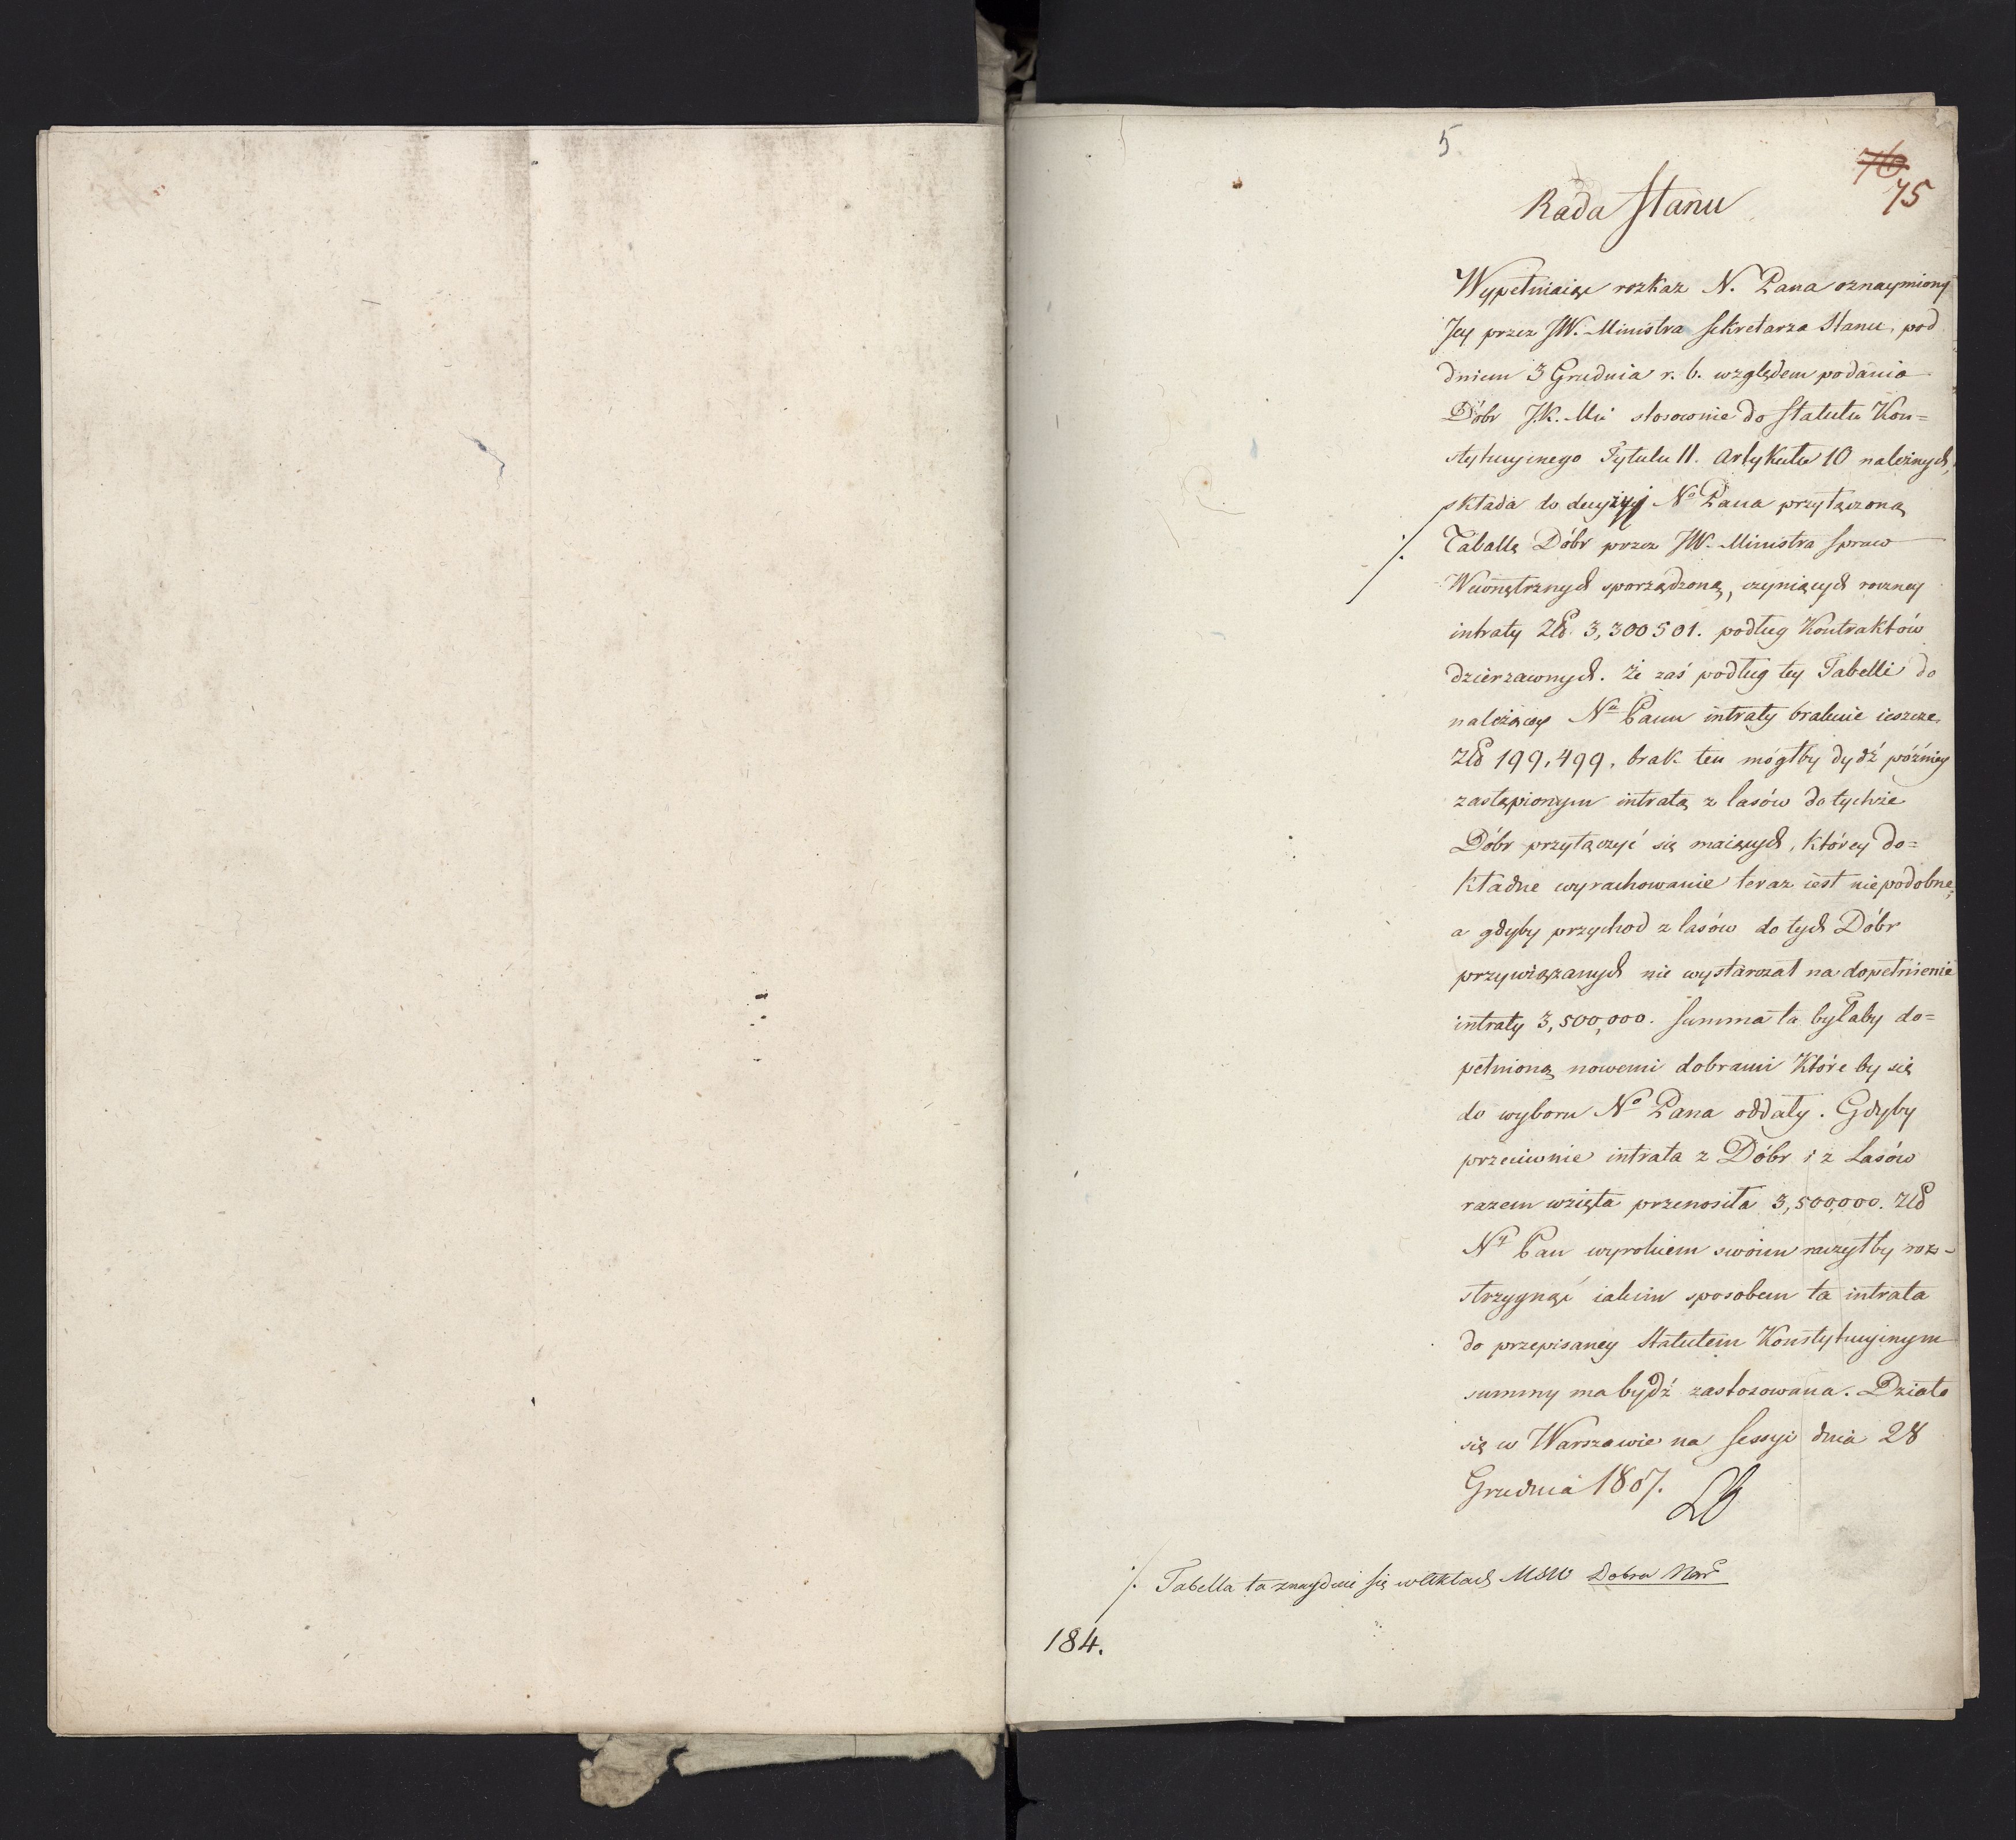 5
76
75
Rada Stanu
Wypełniaiąc rozkaz N. Pana oznaymiony
Jey przez JW. Ministra Sekretarza Stanu, pod
dniem 3 Grudnia r. b. względem podania
Dóbr J.K. Mci stosownie do Statutu Kon=
stytucyinego Tytulu II. Artykułu 10 należnych,
składa do decyzyi No Pana przyłączoną
·/. Taballę Dóbr przez JW. Ministra Spraw
Wewnętrznych sporządzoną, czyniących roczney
intraty Złł. 3,300501. podług Kontraktów
dzierzawnych. Że zaś podług tey Tabelli do
należącey Nu Panu intraty brakuie ieszcze
Złł 199,499, brak ten mógłby dydź późniey
zastąpionym intratą z lasów do tychże
Dóbr przyłączyć się maiących, którey do=
kładne wyrachowanie teraz iest niepodobne;
a gdyby przychod z lasów do tych Dóbr
przywiązanych nie wystarczał na dopełnienie
intraty 3,500,000. Summa ta byłaby do=
pełnioną nowemi dobrami które by się
do wyboru No Pana oddały. Gdyby
przeciwnie intrata z Dóbr i z Lasów
razem wzięta przenosiła 3,500,000. złł
Ny Pan wyrokiem swoim raczyłby roz-
strzygnąć iakim sposobem ta intrata
do przepisaney Statutem Konstytucyinym
summy ma bydź zastosowana. Działo
się w Warszawie na Sessyi dnia 28
Grudnia 1807.
·/. Tabella ta znayduie się w Aktach MSW Dobra Nar
184.